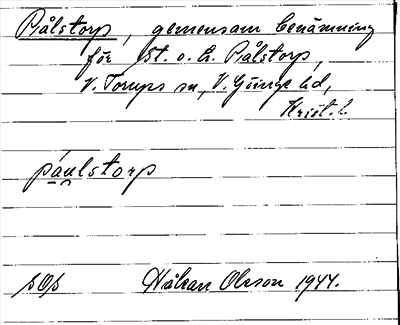 Pålstorp, gemensam benämning
för St. o. L. Pålstorp,
V. Torups sn, V. Göinge hd,
Krist. l.
páulstorp
sOs Håkan Olsson 1944.